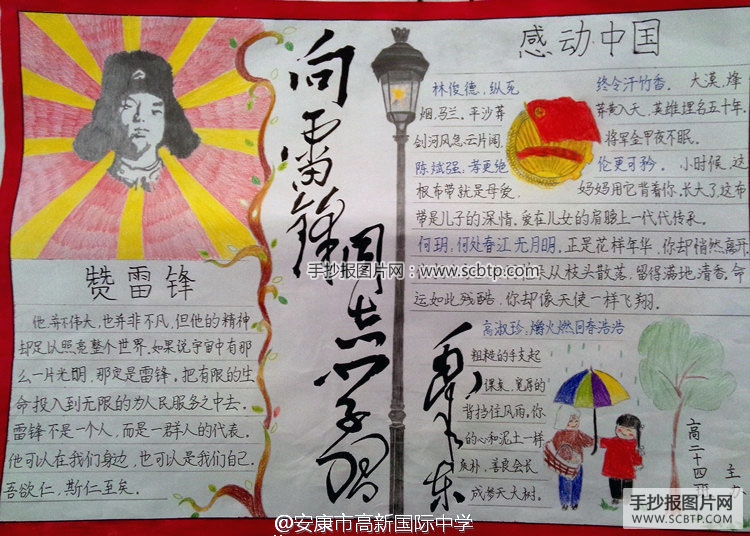 赞雷锋
他,并不伟大,也并非不凡,但他的精神
却足以照亮整个世界。如果说宇宙中有那
么一片光明,那定是雷锋。把有限的生
命投入到无限的为人民服务之中去。
雷锋不是一个人,而是一群人的代表。
他可以在我们身边,也可以是我们自己。
吾欲仁,斯仁至矣。
向雷锋同志学习
毛泽东
感动中国
林俊德,纵死 终令汗竹香。大漠,烽
烟,马兰。平沙莽 莽黄入天,英雄埋名五十年。
剑河风急云片阔, 将军金甲夜不眠。
陈斌强:孝更绝 伦更可矜。小时候,这
根布带就是母爱, 妈妈用它背着你,长大了,这布
带是儿子的深情。爱在儿女的肩膀上一代代传承。
何玥,何处春江无月明。正是花样年华,你却悄然离开。
从枝头散落,留得满地清香。命
运如此残酷,你却像天使一样飞翔。
高淑珍:爝火燃回春浩浩
粗糙的手支起
课桌,宽厚的
背挡住风雨,你
的心和泥土一样
质朴,善良会长
成参天大树。
高二十四班
手抄报图片网:www.scbtp.com
@安康市高新国际中学
手抄报图片网
WWW.SCBTP.COM